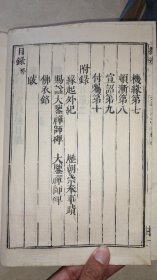 機緣第七
頓漸第八
宣詔第九
付囑第十
附錄
緣起外紀 歷朝崇奉事蹟
賜諡大鑒禪師碑 大鑒禪師碑
佛衣銘
跋
目錄終